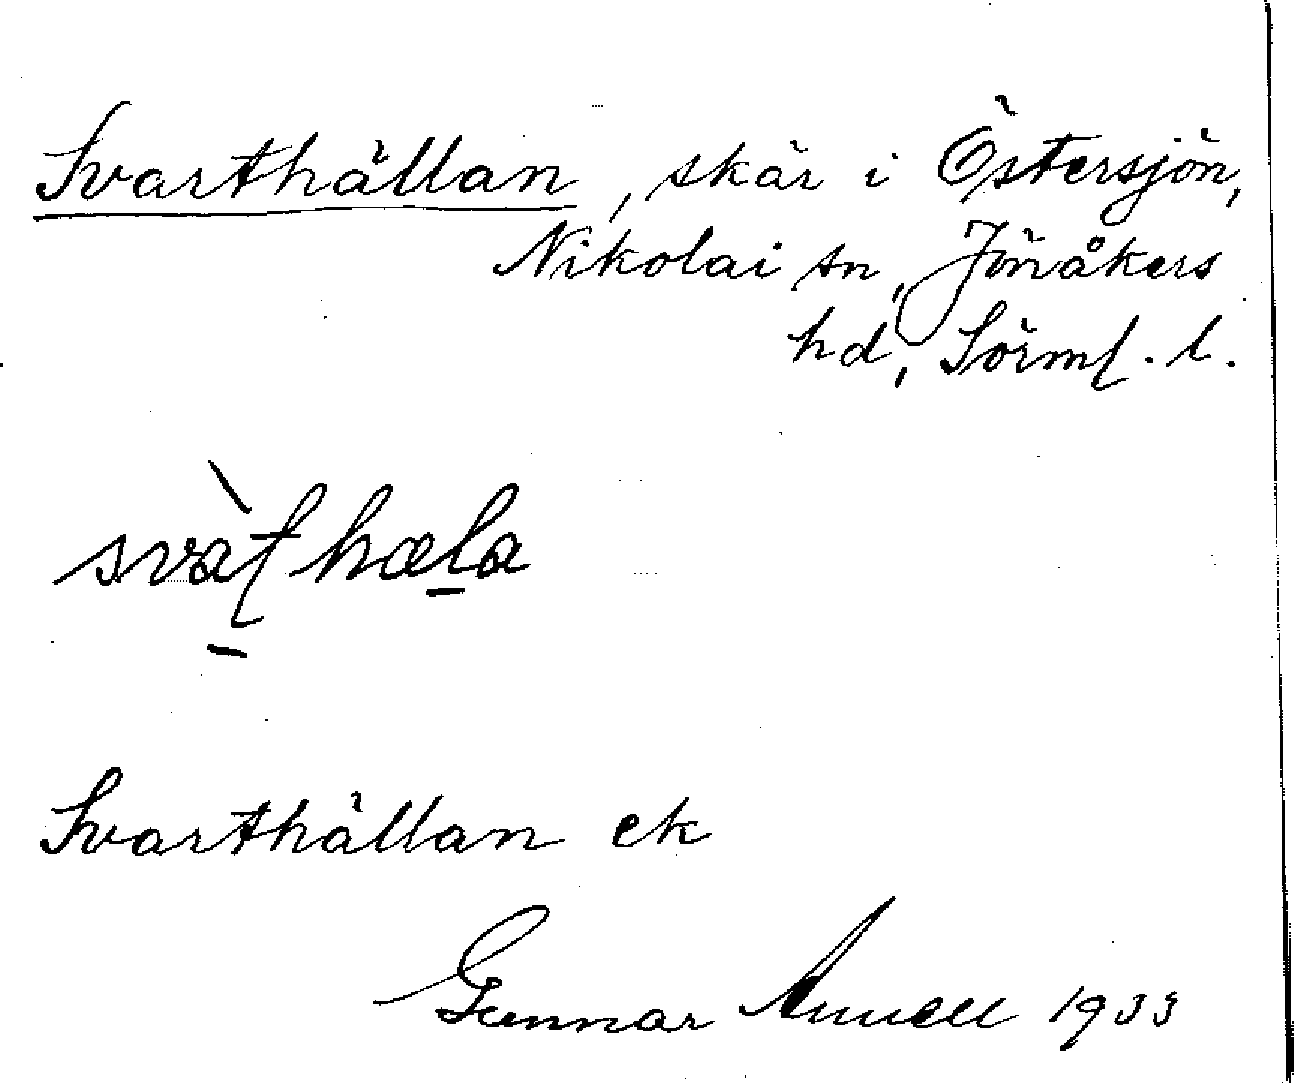 Svarthällan, skär i Östersjön,
Nikolai sn, Jönåkers
hd, Sörml. l.
svàṯhæḻa
Svarthällan ek
Gunnar Annell 1933